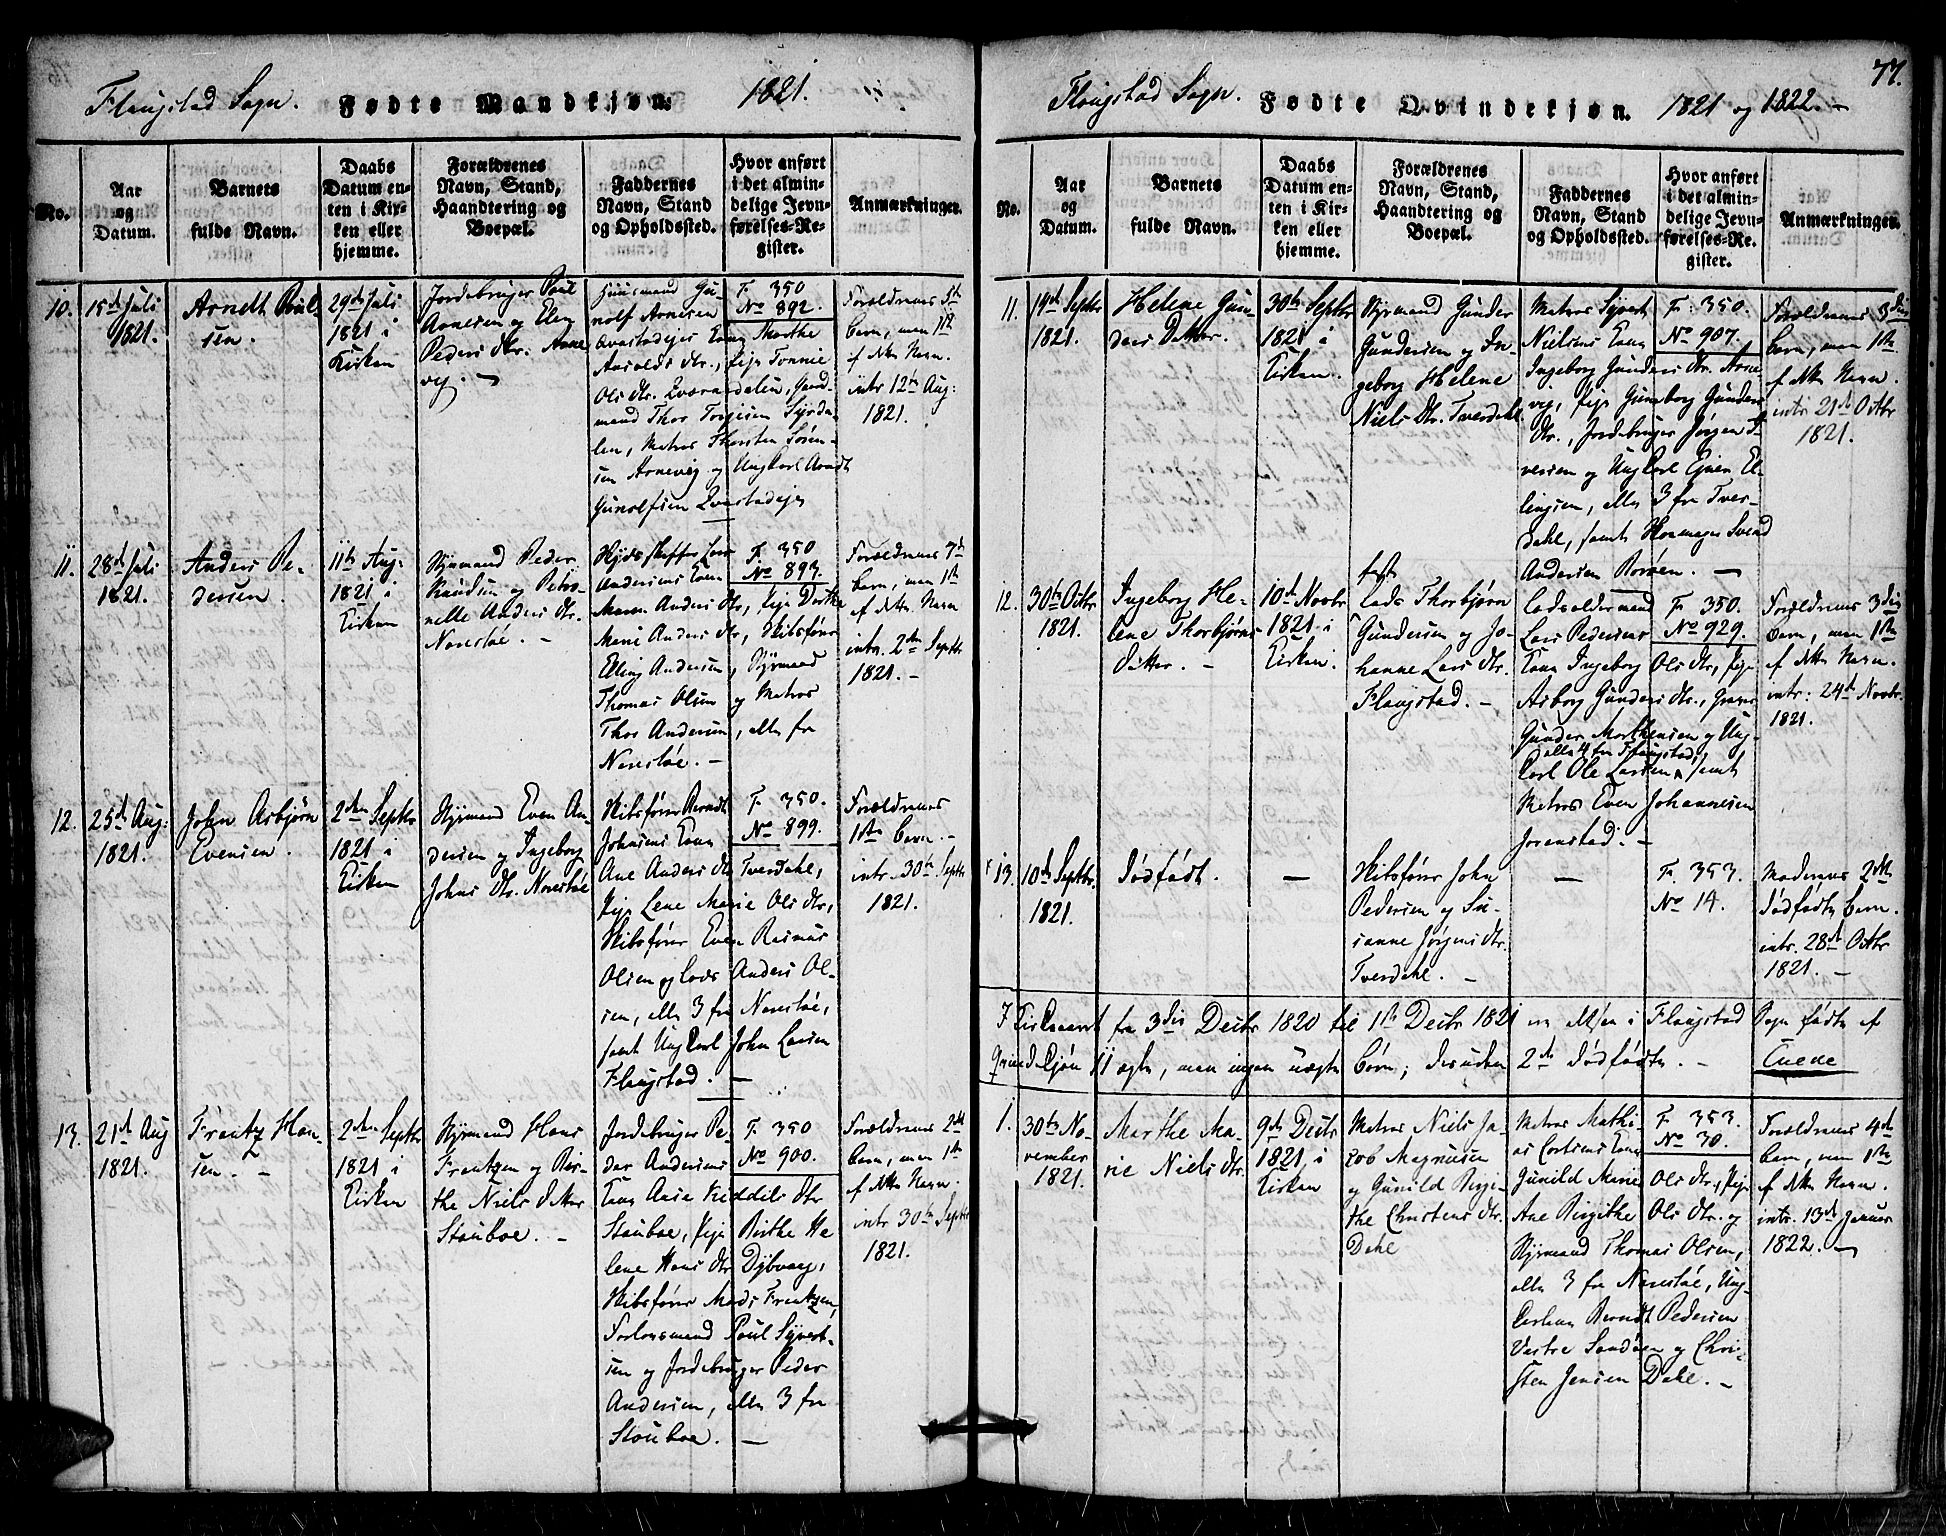 Flaugstad Sogn. Fødte Mandkjøn. 1821.
No.
Aar
og
Datum.
Barnets
fulde Navn.
Daabs
Datum en-
ten i Kir-
ken eller
hjemme.
Forældrenes
Navn, Stand,
Haandtering og
Boepæl.
Faddernes
Navn, Stand
og Opholdssted.
Hvor anført
i det almin-
delige Jevn-
førelses-Re-
gister.
Anmærkninger.
10.
15de Juli
1821.
Arndt Poul
sen.
29de Juli
1821 i
Kirken
Jordebruger Poul
Arnesen og Elen
Peders dtr. Arne
vig. —
Huusmand Gu-
nolf Arnesen
Aasolds dtr., Pige Tonnie
mand Thor Torgersen
sen Arnevig og Ungkarl Arndt
F. 350
No 892.
Forældrenes 5te
barn, men 1ste
af dette Navn
intr 12te Aug:
1821.
11.
28de Juli
1821.
Anders Pe-
dersen.
11te Aug:
1821 i
Kirken
Styrmand Peder
Knudsen og Petro-
nelle Anders dtr.
Narestøe. —
Andersens Kone
Maren Anders dtr, Pige Dorthe
Marie Anders dtr, Skibsfører
Elling Andersen, Styrmand
Thomas Olsen og Matros
Thor Andersen, alle fra
Narestøe. —
F. 350
No 893.
Forældrenes 7de
barn, men 1ste
af dette Navn
intr. 2den Septbr
1821. —
12.
25de Aug:
1821.
John Asbjørn
Evensen.
2den Septbr
1821 i
Kirken
Styrmand Even An-
dersen og Ingeborg
Johns dtr. Narestøe
Skibsfører Berndt
Johnsens Kone
Ane Anders dtr Tverdahl,
Pige Lene Marie Ols dtr,
Skibsfører Even Rasmus
Olsen og Lods Anders Ol-
sen, alle 3 fra Narestøe,
samt Ungkarl John Larsen
Flaugstad. —
F. 350.
No 899.
Forældrenes
1ste barn. —
intr. 30te Septbr
1821.
13.
21de Aug
1821.
Frantz Han-
sen. —
2den Septbr
1821 i
Kirken
Styrmand Hans
Frantzen og Bir-
the Niels datter
Stouboe. —
Jordebruger Pe-
der Andersens
Kone Aase Kieddels dtr
Stouboe, Pige Birthe He
lene Hans dtr Dybvaag,
Skibsfører Mads Frantzen,
Forlovsmand Poul Syvert-
sen og Jordebruger Peder
Andersen, alle 3 fra
Stouboe. —
F. 350
No 900.
Forældrenes 2det
barn, men 1ste
af dette Navn.
intr 30te Septbr
1821.
77.
Flaugstad Sogn. Fødte Qvindekjøn. 1821 og 1822. —
No.
Aar
og
Datum.
Barnets
fulde Navn.
Daabs
Datum en-
ten i Kir-
ken eller
hjemme.
Forældrenes
Navn, Stand,
Haandtering og
Boepæl.
Faddernes
Navn, Stand
og Opholdssted.
Hvor anført
i det almin-
delige Jevn-
førelses-Re-
gister.
Anmærkninger.
11.
14de Septbr
1821.
Helene Gun
ders Datter.
30te Septbr
1821 i
Kirken.
Styrmand Gunder
Gundersen og In-
geborg Helene
Niels dtr. Tverdahl.
Matros Syvert
Nielsens Kone
Ingeborg Gunders dtr. Arne
vig, Pige Gunborg Gunders
dtr., Jordebruger Jørgen I-
versen og Ungkarl Even El-
lingsen, alle 3 fra Tver-
dahl, samt
Andersen
F. 350.
No 907.
Forældrenes 3die
barn, men 1ste
af dette Navn.
intr. 21de Octbr
1821.
12.
30te Octbr
1821.
Ingeborg He-
lene Thorbjørns
Datter. —
10de Novbr
1821 i
Kirken.
Lods Thorbjørn
Gundersen og Jo-
hanne Lars dtr.
Flaugstad. —
Lodsoldermand
Lars Pedersens
Kone Ingeborg Ols dtr, Pige
Asborg Gunders dtr.,
Gunder Morthensen og Ung-
alle 4 fra Flaugstad,
karl Ole Larsen, samt
Matros Even Johannesen
Jorenstad. —
F. 350.
No 929.
Forældrenes 3die
barn, men 1ste
af dette Navn.
intr: 24de Novbr.
1821.
13.
10de Septbr.
1821.
Dødfødt.
—
Skibsfører John
Pedersen og Su-
sanne Jørgens dtr.
Tverdahl. —
—
F. 353.
No 14.
Moderens 2det
dødfødte barn.
intr. 28de Octbr
1821. —
I Kirkeaaret fra 3die Decbr 1820 til 1ste Decbr 1821 er altsaa i Flaugstad Sogn fødte af
Qvindekjøn 11 ægte, men ingen uægte børn; desuden 2de dødfødte. — Cuene
1.
30te No-
vember
1821.
Marthe Ma-
rie Niels dtr.
9de Decbr
1821 i
Kirken
Matros Niels Ja-
cob Magnusen
og Gunild Birgi-
the Christens dtr.
Dahl
Matros Mathi-
as Kortsens Kone
Gunild Marie Ols dtr, Pige
Ane Birgithe Ols dtr. og
Styrmand Thomas Olsen,
alle 3 fra Narestøe, Ung-
karlene Berndt Pedersen
Vestre Sandøen og Chri-
sten Jensen Dahl. —
F. 353.
No 30.
Forældrenes 4de
barn, men 1ste
af dette Navn.
intr. 13de Januar
1822. —